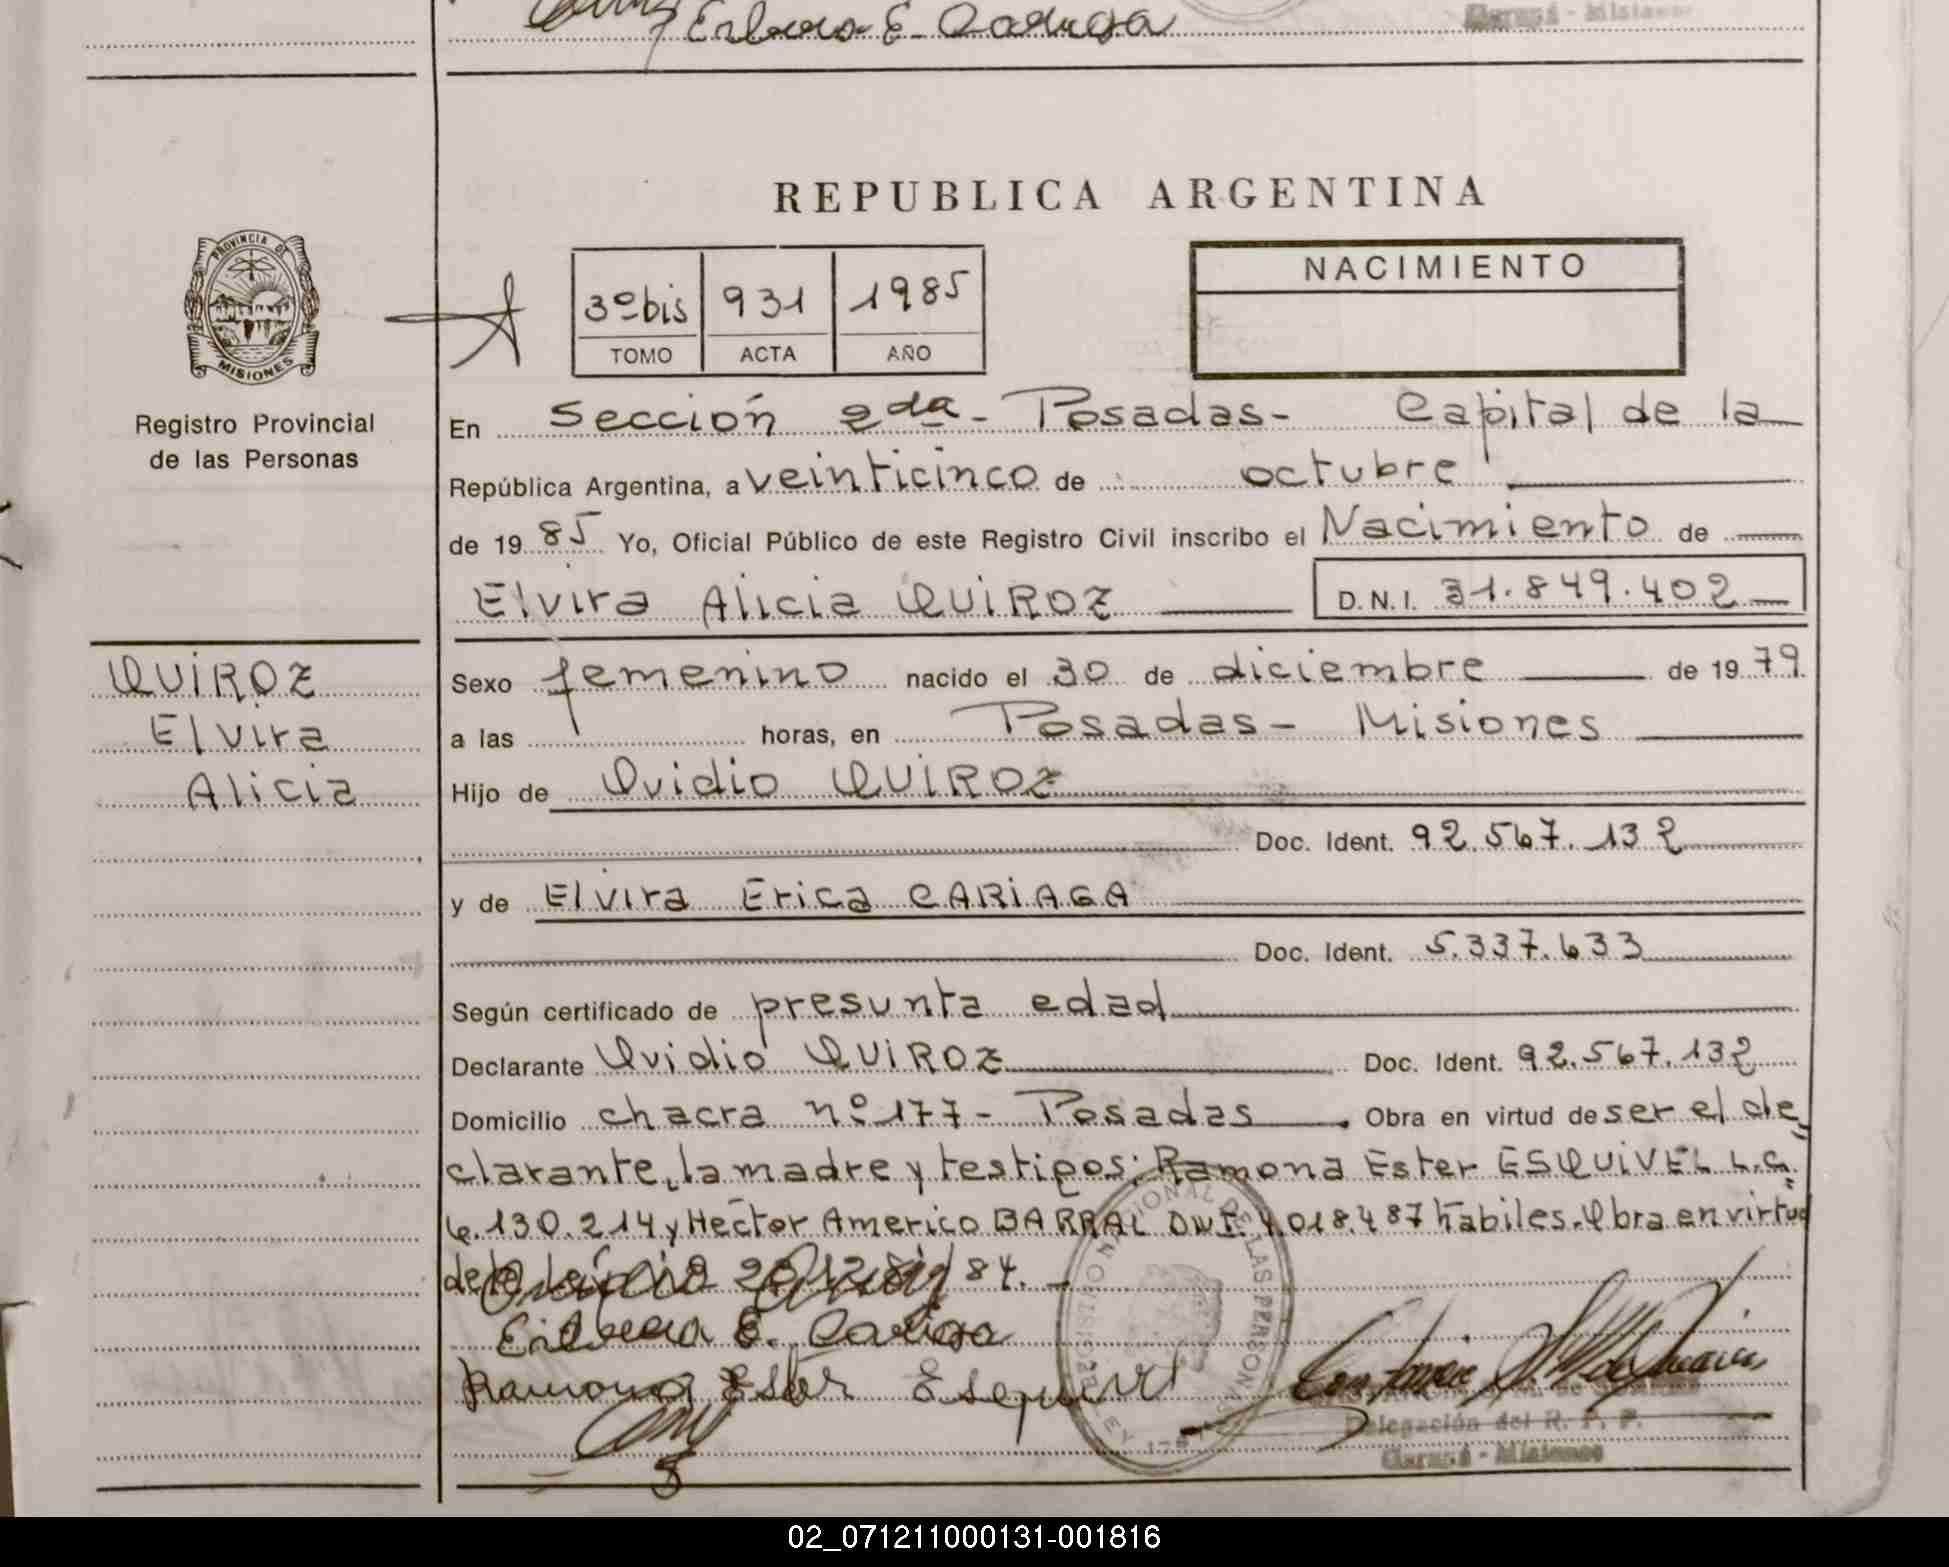 PROVINCIA DE
MISIONES
Registro Provincial
de las Personas
QUIROZ
Elvira
Alicia
REPUBLICA ARGENTINA
3º bis 931 1985
TOMO ACTA AÑO
NACIMIENTO
En Sección 2da - Posadas - Capital de la
República Argentina, a veinticinco de octubre
de 1985 Yo, Oficial Público de este Registro Civil inscribo el Nacimiento de
Elvira Alicia QUIROZ D.N.I. 31.849.402
Sexo femenino nacido el 30 de diciembre de 1979.
a las horas, en Posadas - Misiones
Hijo de Ovidio QUIROZ
Doc. Ident. 92.567.132
y de Elvira Erica CARIAGA
Doc. Ident. 5.337.633
Según certificado de presunta edad
Declarante Ovidio QUIROZ Doc. Ident. 92.567.132
Domicilio chacra nº 177 - Posadas. Obra en virtud de ser el de=
clarante, la madre y testigos: Ramona Ester ESQUIVEL L.C.=
6.130.214 y Hector Americo BARRAL 4.018.487 habiles. Obra en virtud
84.-
Ramona Ester Esquivel
Delegación del R. P. P.
Garupá - Misiones
02_071211000131-001816